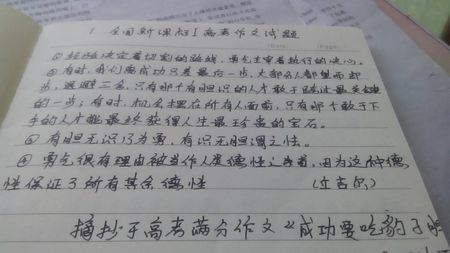 1 全国新课标I高考作文试题
① 经验决定着切割的路线,勇气主宰着执行的决心。
② 有时,我们离成功只差最后一步,大部分人都望而却
步,退避三舍,只有那个有胆识的人才敢于跨过最关键
的一步;有时,机会摆在所有人面前,只有那个敢于下
手的人才能最终获得人生最珍贵的宝石。
③ 有胆无识乃为勇,有识无胆谓之怯。
④ 勇气很有理由被当作人类德性之首,因为这种德
性保证了所有其余德性 (丘吉尔)
摘抄于高考满分作文《成功要吃豹子胆